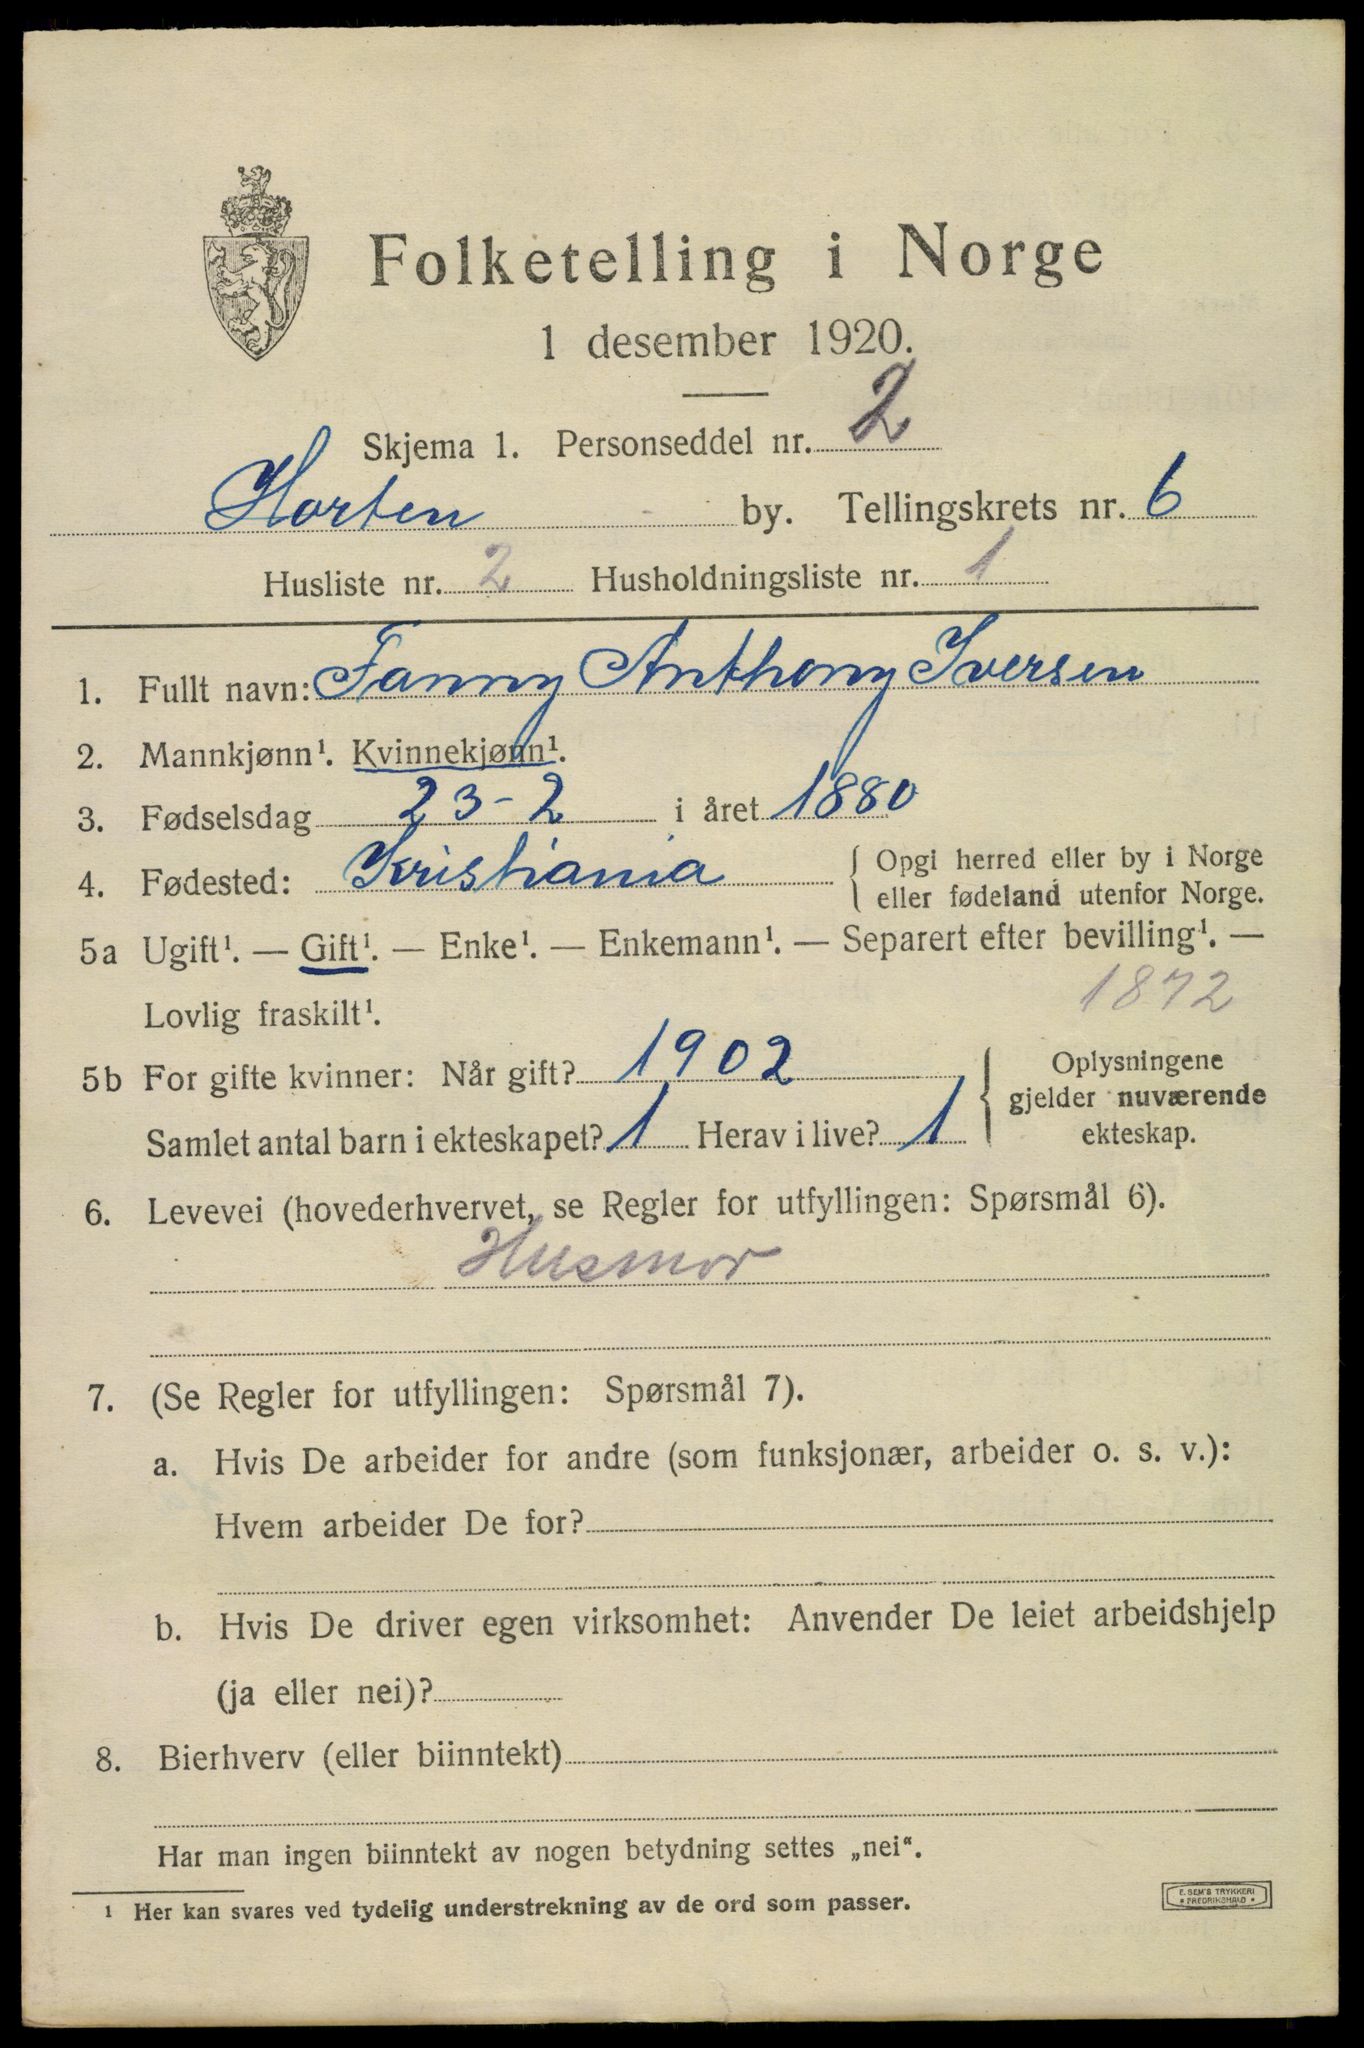 Folketelling i Norge
1 desember 1920.
Skjema 1. Personseddel nr. 2
Horten by. Tellingskrets nr. 6
Husliste nr. 2 Husholdningsliste nr. 1
1. Fullt navn: Fanny Anthony Iversen
2. Mannkjønn¹. Kvinnekjønn¹.
3. Fødselsdag 23-2 i året 1880
4. Fødested: Kristiania { Opgi herred eller by i Norge
eller fødeland utenfor Norge.
5a Ugift¹. — Gift¹. — Enke¹. — Enkemann¹. — Separert efter bevilling¹. —
Lovlig fraskilt¹. 1872
5b For gifte kvinner: Når gift? 1902
Samlet antal barn i ekteskapet? 1 Herav i live? 1
{ Oplysningene
gjelder nuværende
ekteskap.
6. Levevei (hovederhvervet, se Regler for utfyllingen: Spørsmål 6).
Husmor
7. (Se Regler for utfyllingen: Spørsmål 7).
a. Hvis De arbeider for andre (som funksjonær, arbeider o. s. v.):
Hvem arbeider De for?
b. Hvis De driver egen virksomhet: Anvender De leiet arbeidshjelp
(ja eller nei)?
8. Bierhverv (eller biinntekt)
Har man ingen biinntekt av nogen betydning settes „nei“.
¹ Her kan svares ved tydelig understrekning av de ord som passer.
E. SEM'S TRYKKERI
* FREDRIKSHALD *